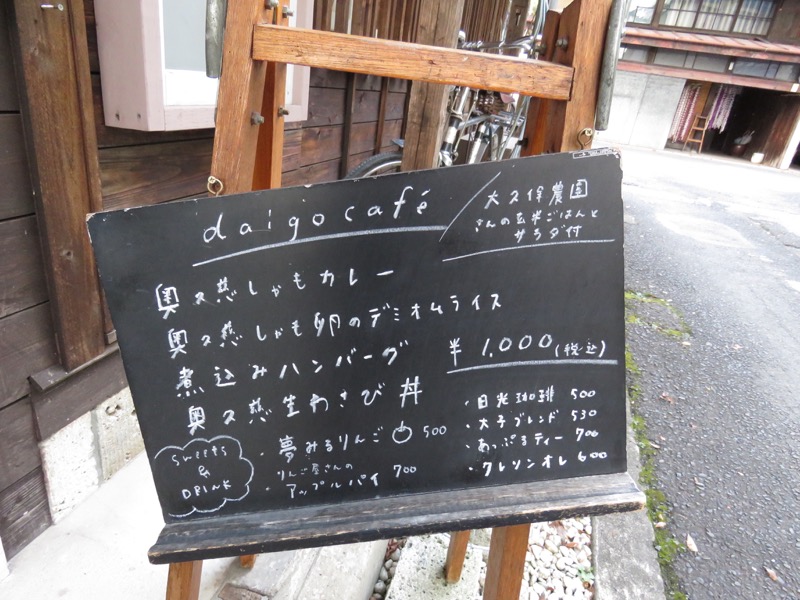 daigo café
大久保農園
さんの玄米ごはんと
サラダ付
奥久慈しゃもカレー
奥久慈しゃも卵のデミオムライス
煮込みハンバーグ
奥久慈生わさび丼
¥1,000(税込)
sweets
&
DRINK
・夢みるりんご 500
・りんご屋さんの
アップルパイ 700
・日光珈琲 500
・大子ブレンド 530
・あっぷるティー 700
・クレソンオレ 600